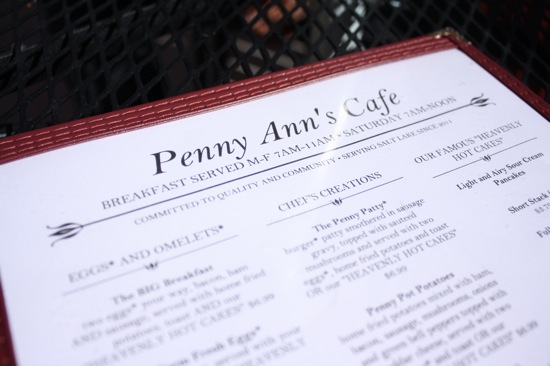 Penny Ann's Cafe
BREAKFAST SERVED M-F 7AM-11AM • SATURDAY 7AM-NOON
COMMITTED TO QUALITY AND COMMUNITY • SERVING SALT LAKE SINCE 2011
EGGS* AND OMELETS*
The BIG Breakfast
two eggs* your way, bacon, ham
AND sausage, served with home fried
potatoes, toast AND our
"HEAVENLY HOT CAKES" $6.99
Eggs*
served with your
HEAVENLY
CHEF'S CREATIONS
The Penny Patty*
burger* patty smothered in sausage
gravy, topped with sauteed
mushrooms and served with two
eggs*, home fried potatoes and toast
OR our "HEAVENLY HOT CAKES"
$8.99
Penny Pot Potatoes
home fried potatoes mixed with ham,
bacon, sausage, mushrooms, onions
and green bell peppers topped with
cheese, served with two
and toast OR our
HOT CAKES"
OUR FAMOUS "HEAVENLY
HOT CAKES"
Light and Airy Sour Cream
Pancakes
Short Stack
Full